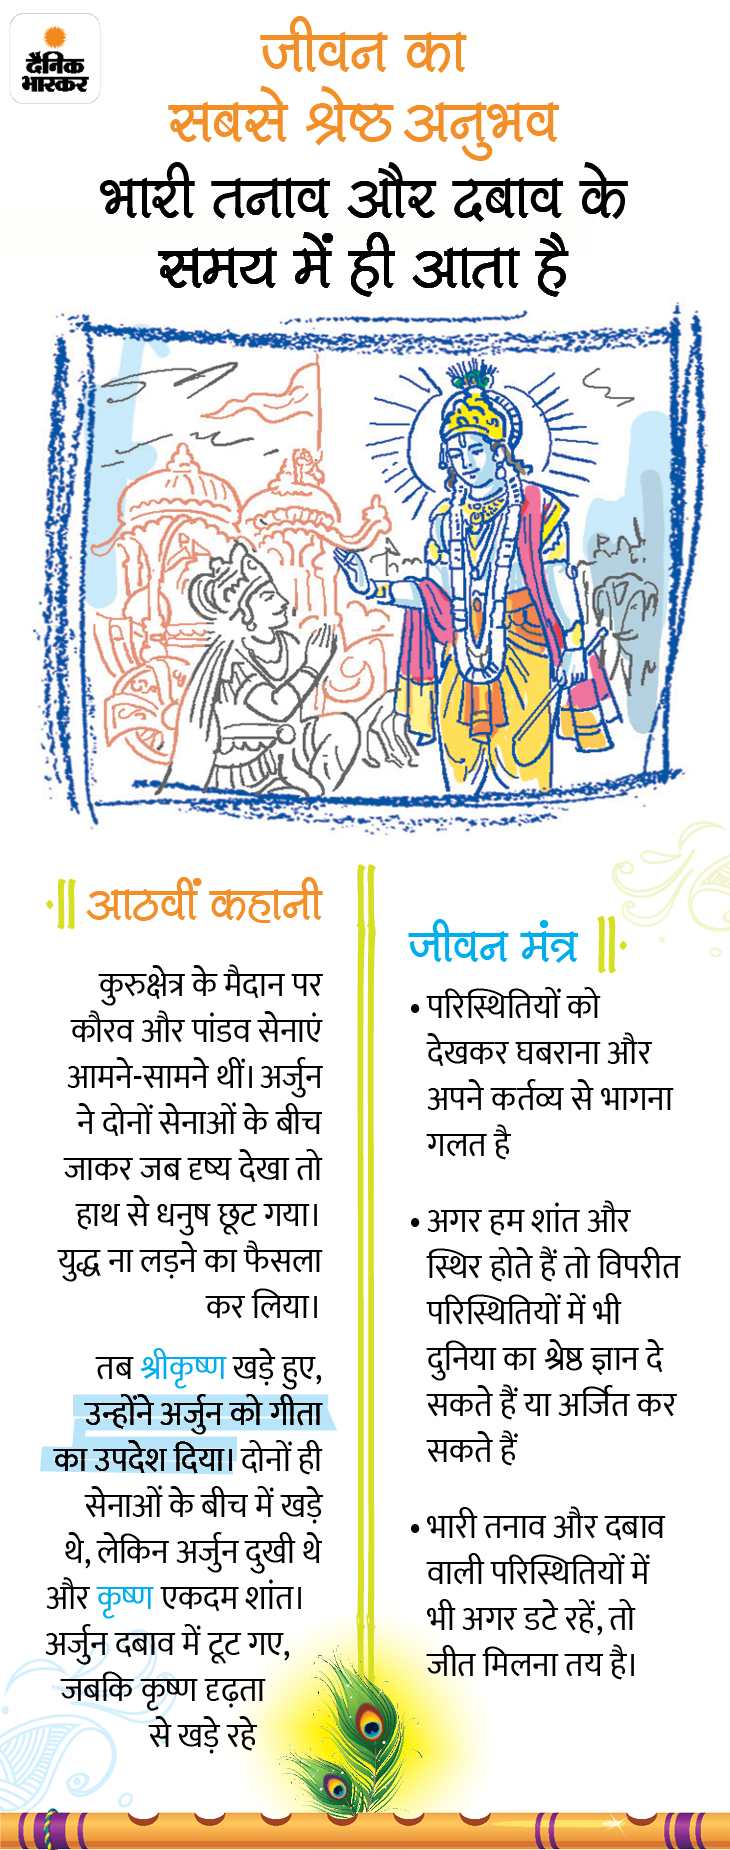 दैनिक
भास्कर
जीवन का
सबसे श्रेष्ठ अनुभव
भारी तनाव और दबाव के
समय में ही आता है
आठवीं कहानी
कुरुक्षेत्र के मैदान पर
कौरव और पांडव सेनाएं
आमने-सामने थीं। अर्जुन
ने दोनों सेनाओं के बीच
जाकर जब दृष्य देखा तो
हाथ से धनुष छूट गया।
युद्ध ना लड़ने का फैसला
कर लिया।
तब श्रीकृष्ण खड़े हुए,
उन्होंने अर्जुन को गीता
का उपदेश दिया। दोनों ही
सेनाओं के बीच में खड़े
थे, लेकिन अर्जुन दुखी थे
और कृष्ण एकदम शांत।
अर्जुन दबाव में टूट गए,
जबकि कृष्ण दृढ़ता
से खड़े रहे
जीवन मंत्र
• परिस्थितियों को
देखकर घबराना और
अपने कर्तव्य से भागना
गलत है
• अगर हम शांत और
स्थिर होते हैं तो विपरीत
परिस्थितियों में भी
दुनिया का श्रेष्ठ ज्ञान दे
सकते हैं या अर्जित कर
सकते हैं
• भारी तनाव और दबाव
वाली परिस्थितियों में
भी अगर डटे रहें, तो
जीत मिलना तय है।